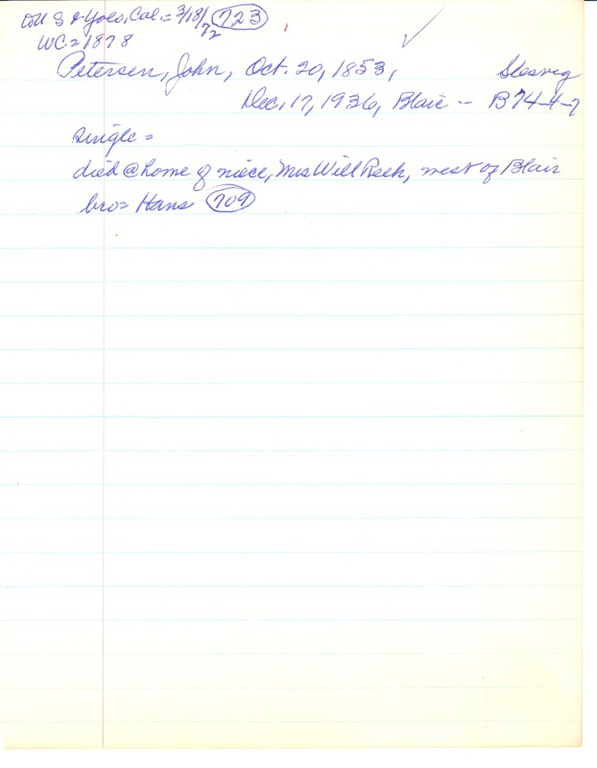 U S & Yolo, Cal. = 3/18/72 723
WC = 1878
Petersen, John, Oct. 20, 1853, Slesvig
Dec. 17, 1936, Blair -- B74-4-7
single =
died @ home of niece, Mrs Will Rech, west of Blair
bro = Hans 709